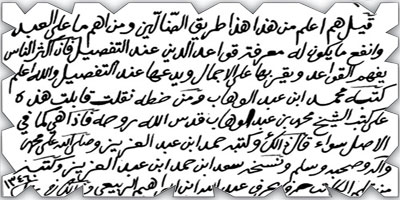 قيل هم اعلم من هذا هذا طريق الضالين ومن اهم ما على العبد
وانفع ما يكون له معرفة قواعد الدين عند التفصيل فان اكثر الناس
يفهم القواعد ويقر بها على الاجمال ويدعها عند التفصيل والله اعلم
كتبه محمد ابن عبد الوهاب ومن خطه نقلت قابلت هذه
على كتب الشيخ محمد بن عبد الوهاب قدس الله روحه فاذا هي كما في
الاصل سواء قال ذلك وكتبه حمد ابن عبد العزيز وصلى الله على محمد
واله وصحبه وسلم ونسخه سعد ابن حمد ابن عبد العزيز وكتبته
من قلم عبد الله ابن ابراهيم الربيعي وذلك ١٣٤٦